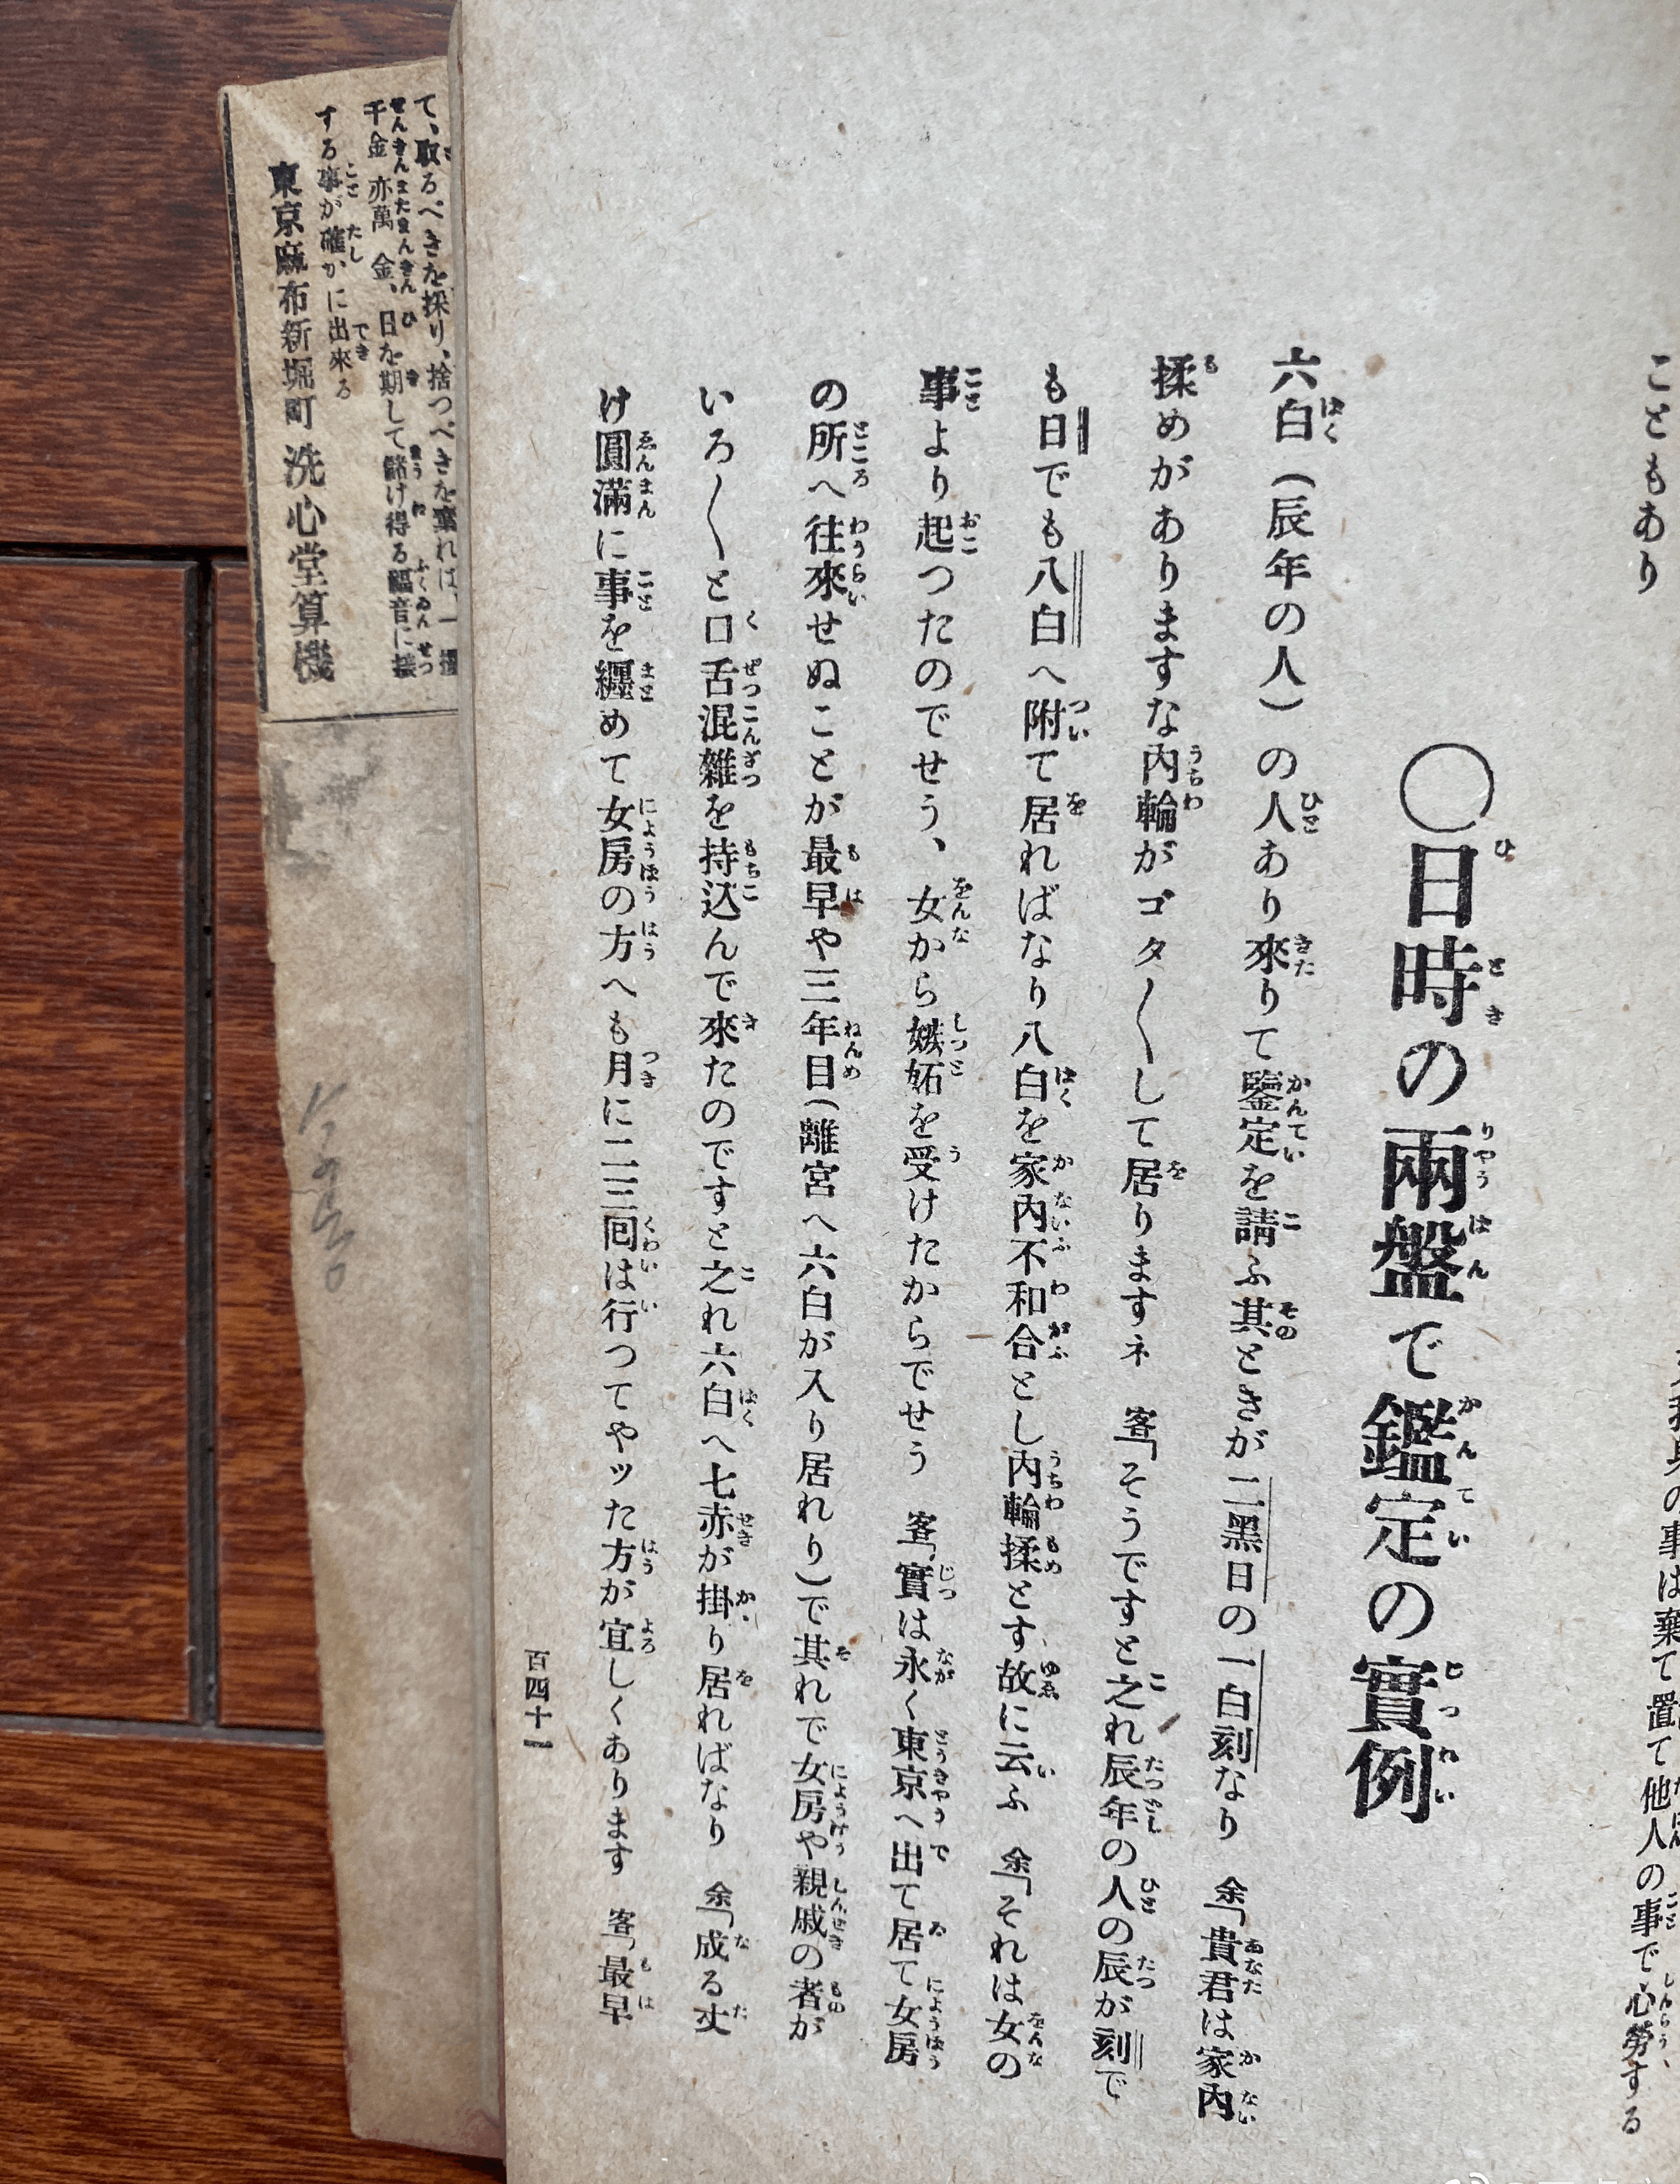 こともあり
の事は棄て置て他人の事で心勞する
〇日時の兩盤で鑑定の實例
六白(辰年の人)の人あり來りて鑒定を請ふ其ときが二黑日の一白刻なり 余「貴君は家內
揉めがありますな內輪がゴタ〳〵して居りますネ 客「そうですと之れ辰年の人の辰が刻で
も日でも八白へ附て居ればなり八白を家內不和合とし內輪揉とす故に云ふ 余「それは女の
事より起つたのでせう、女から嫉妬を受けたからでせう 客「實は永く東京へ出て居て女房
の所へ往來せぬことが最早や三年目(離宮へ六白が入り居れり)で其れで女房や親戚の者が
いろ〳〵と口舌混雜を持込んで來たのですと之れ六白へ七赤が掛り居ればなり 余「成る丈
け圓滿に事を纒めて女房の方へも月に二三囘は行つてやッた方が宜しくあります 客「最早
百四十一
て、取るべきを採り、捨つべきを棄れば、一
千金亦萬金、日を期して儲け得る福音に接
する事が確かに出來る
東京麻布新堀町 洗心堂算機